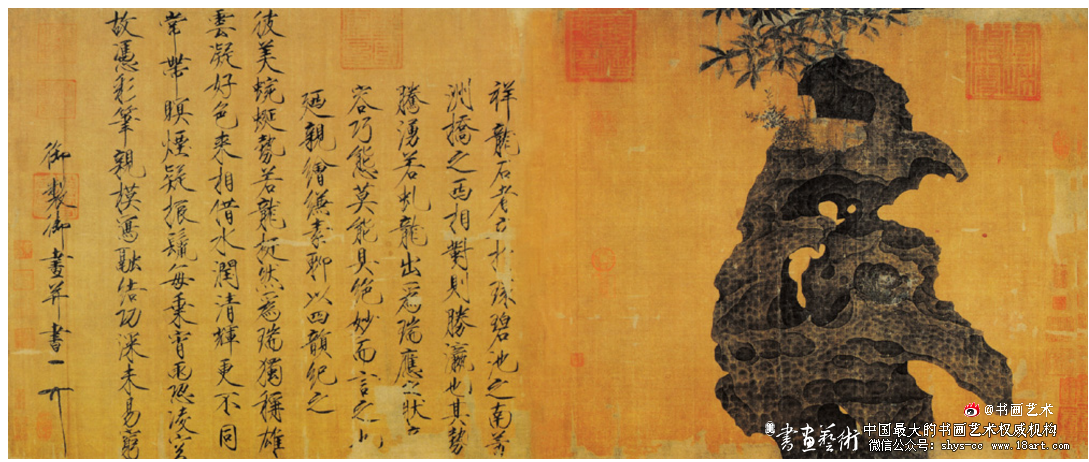 祥龍石者立於環碧池之南芳
洲橋之西相對則勝瀛也其勢
騰湧若虬龍出為瑞應之狀奇
容巧態莫能具絕妙而言之也
廼親繪縑素聊以四韻紀之
彼美蜿蜒勢若龍挺然為瑞獨稱雄
雲凝好色來相借水潤清輝更不同
常帶暝煙疑振鬛每乘宵雨恐凌空
故憑彩筆親模寫融結功深未易窮
御製御畫并書
@书画艺术
書畫藝術
中国最大的书画艺术权威机构
微信公众号: shys-cc www.18art.com